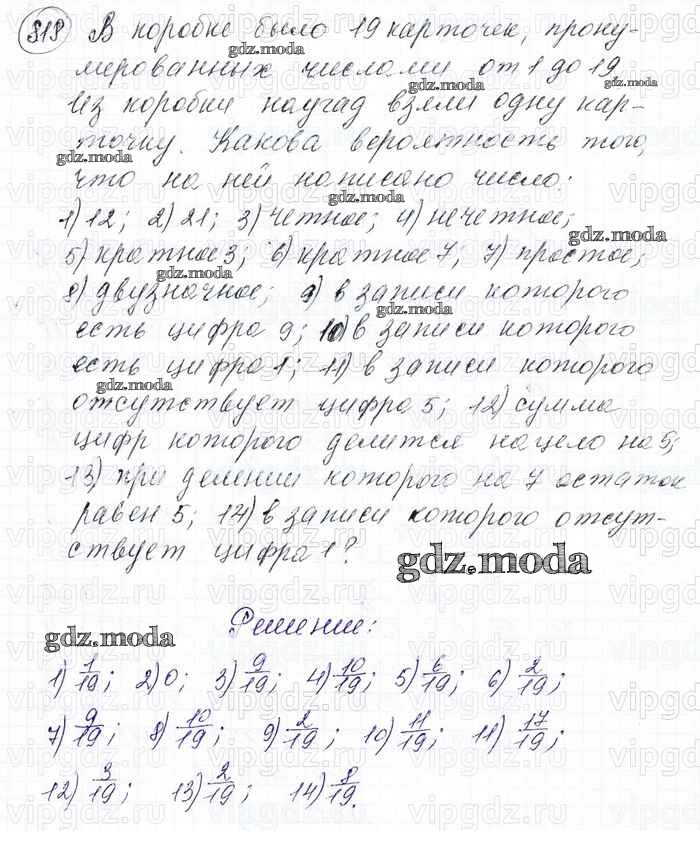 818 В коробке было 19 карточек, прону-
мерованных числами от 1 до 19
Из коробки наугад взяли одну кар-
точку. Какова вероятность того,
что на ней написано число:
1) 12; 2) 21; 3) четное; 4) нечетное;
5) кратное 3; 6) кратное 7; 7) простое;
8) двузначное; 9) в записи которого
есть цифра 9; 10) в записи которого
есть цифра 1; 11) в записи которого
отсутствует цифра 5; 12) сумма
цифр которого делится нацело на 5;
13) при делении которого на 7 остаток
равен 5; 14) в записи которого отсут-
ствует цифра 1?
gdz.moda
Решение:
gdz.moda
1) 1/19; 2) 0; 3) 9/19; 4) 10/19; 5) 6/19; 6) 2/19;
7) 9/19; 8) 10/19; 9) 2/19; 10) 11/19; 11) 17/19;
12) 3/19; 13) 2/19; 14) 8/19.